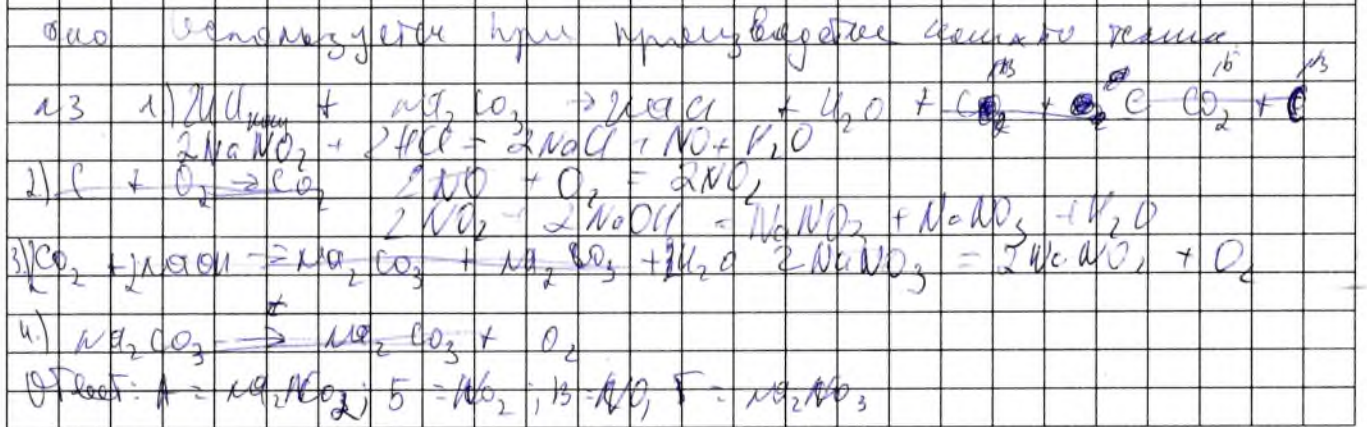 оно используется при производстве
№3 1) 2HCl + Na2CO3 → 2NaCl + H2O + CO2 + C CO2 + C
2NaNO2 + 2HCl = 2NaCl + NO + H2O
2) C + O2 → CO2 2NO + O2 = 2NO2
2NO2 + 2NaOH = NaNO2 + NaNO3 + H2O
3) CO2 + 2NaOH = Na2CO3 + Na2CO3 + H2O 2NaNO3 = 2NaNO2 + O2
4.) Na2CO3 →t Na2CO3 + O2
Ответ: А = Na2NO2; Б = NO2; В = NO, Г = Na2NO3